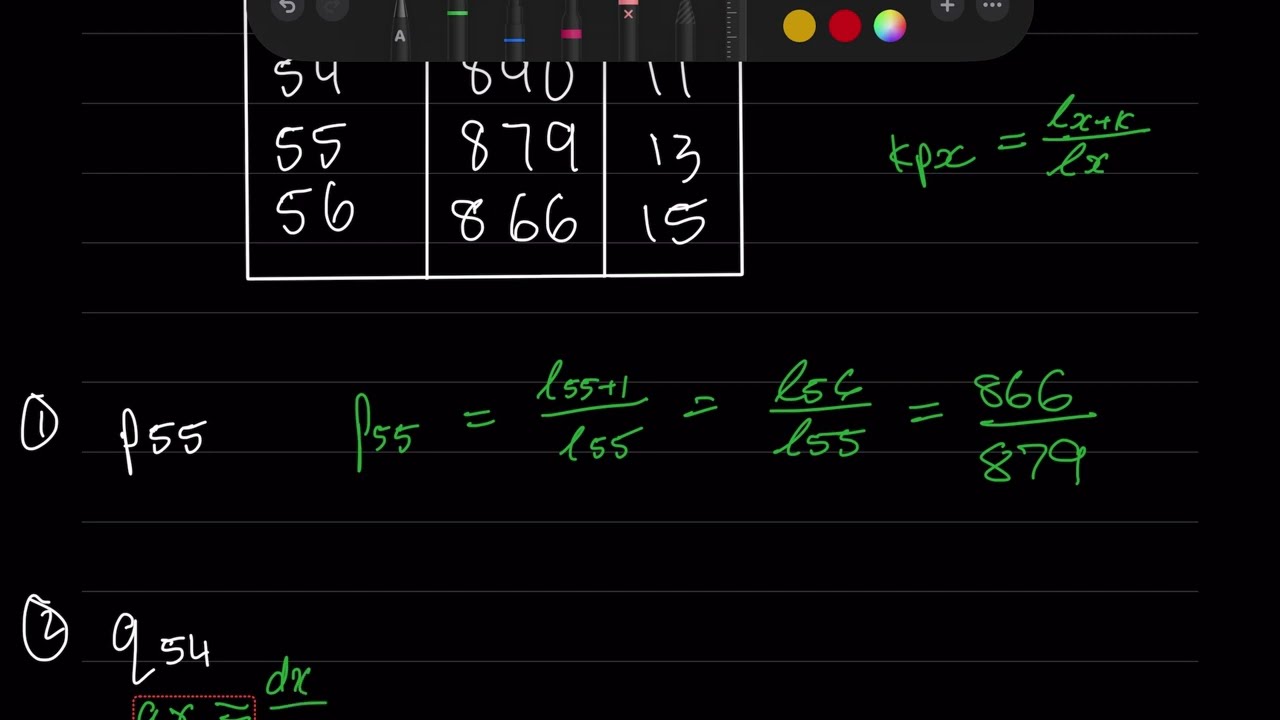 A
54 890 11
55 879 13
56 866 15
kpx = lx+k / lx
① p55 p55 = l55+1 / l55 = l56 / l55 = 866 / 879
② q54
qx = dx /